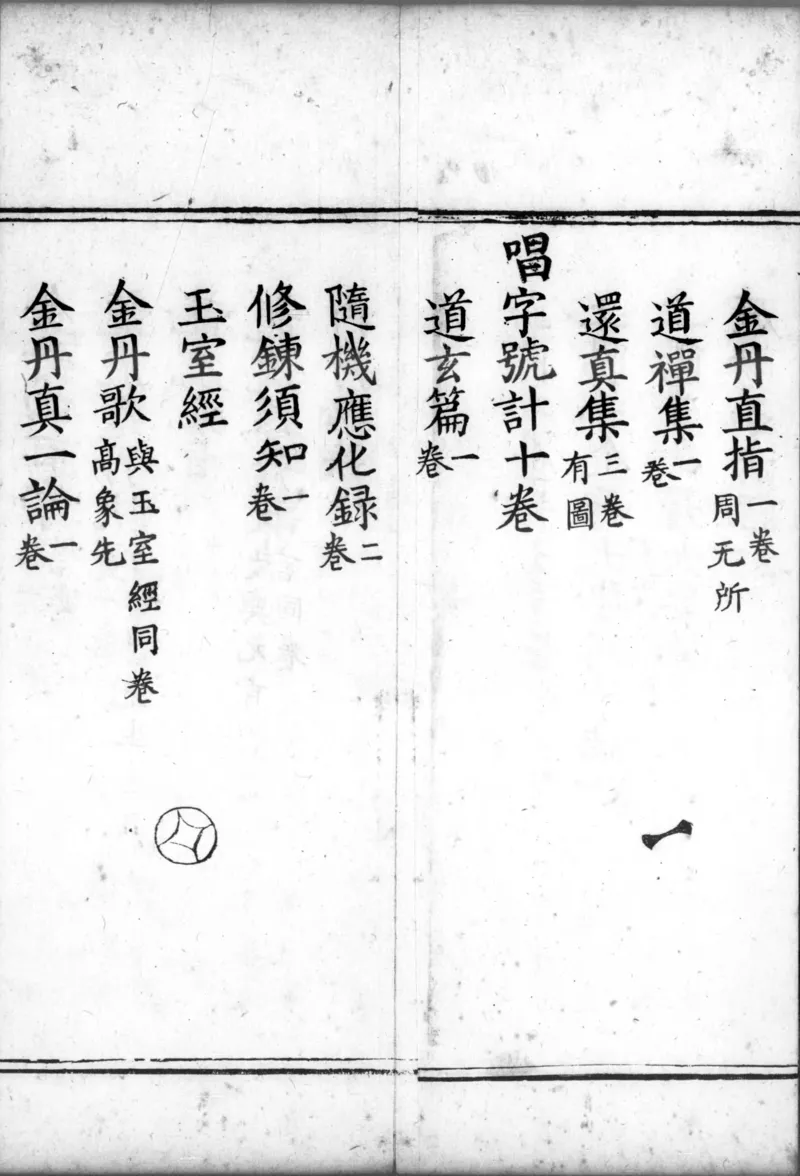 金丹直指一卷周无所
道禪集一卷
還真集三卷有圖
唱字號計十卷
道玄篇一卷
隨機應化録二卷
修鍊須知一卷
玉室經
金丹歌與玉室經同卷高象先
金丹真一論一卷